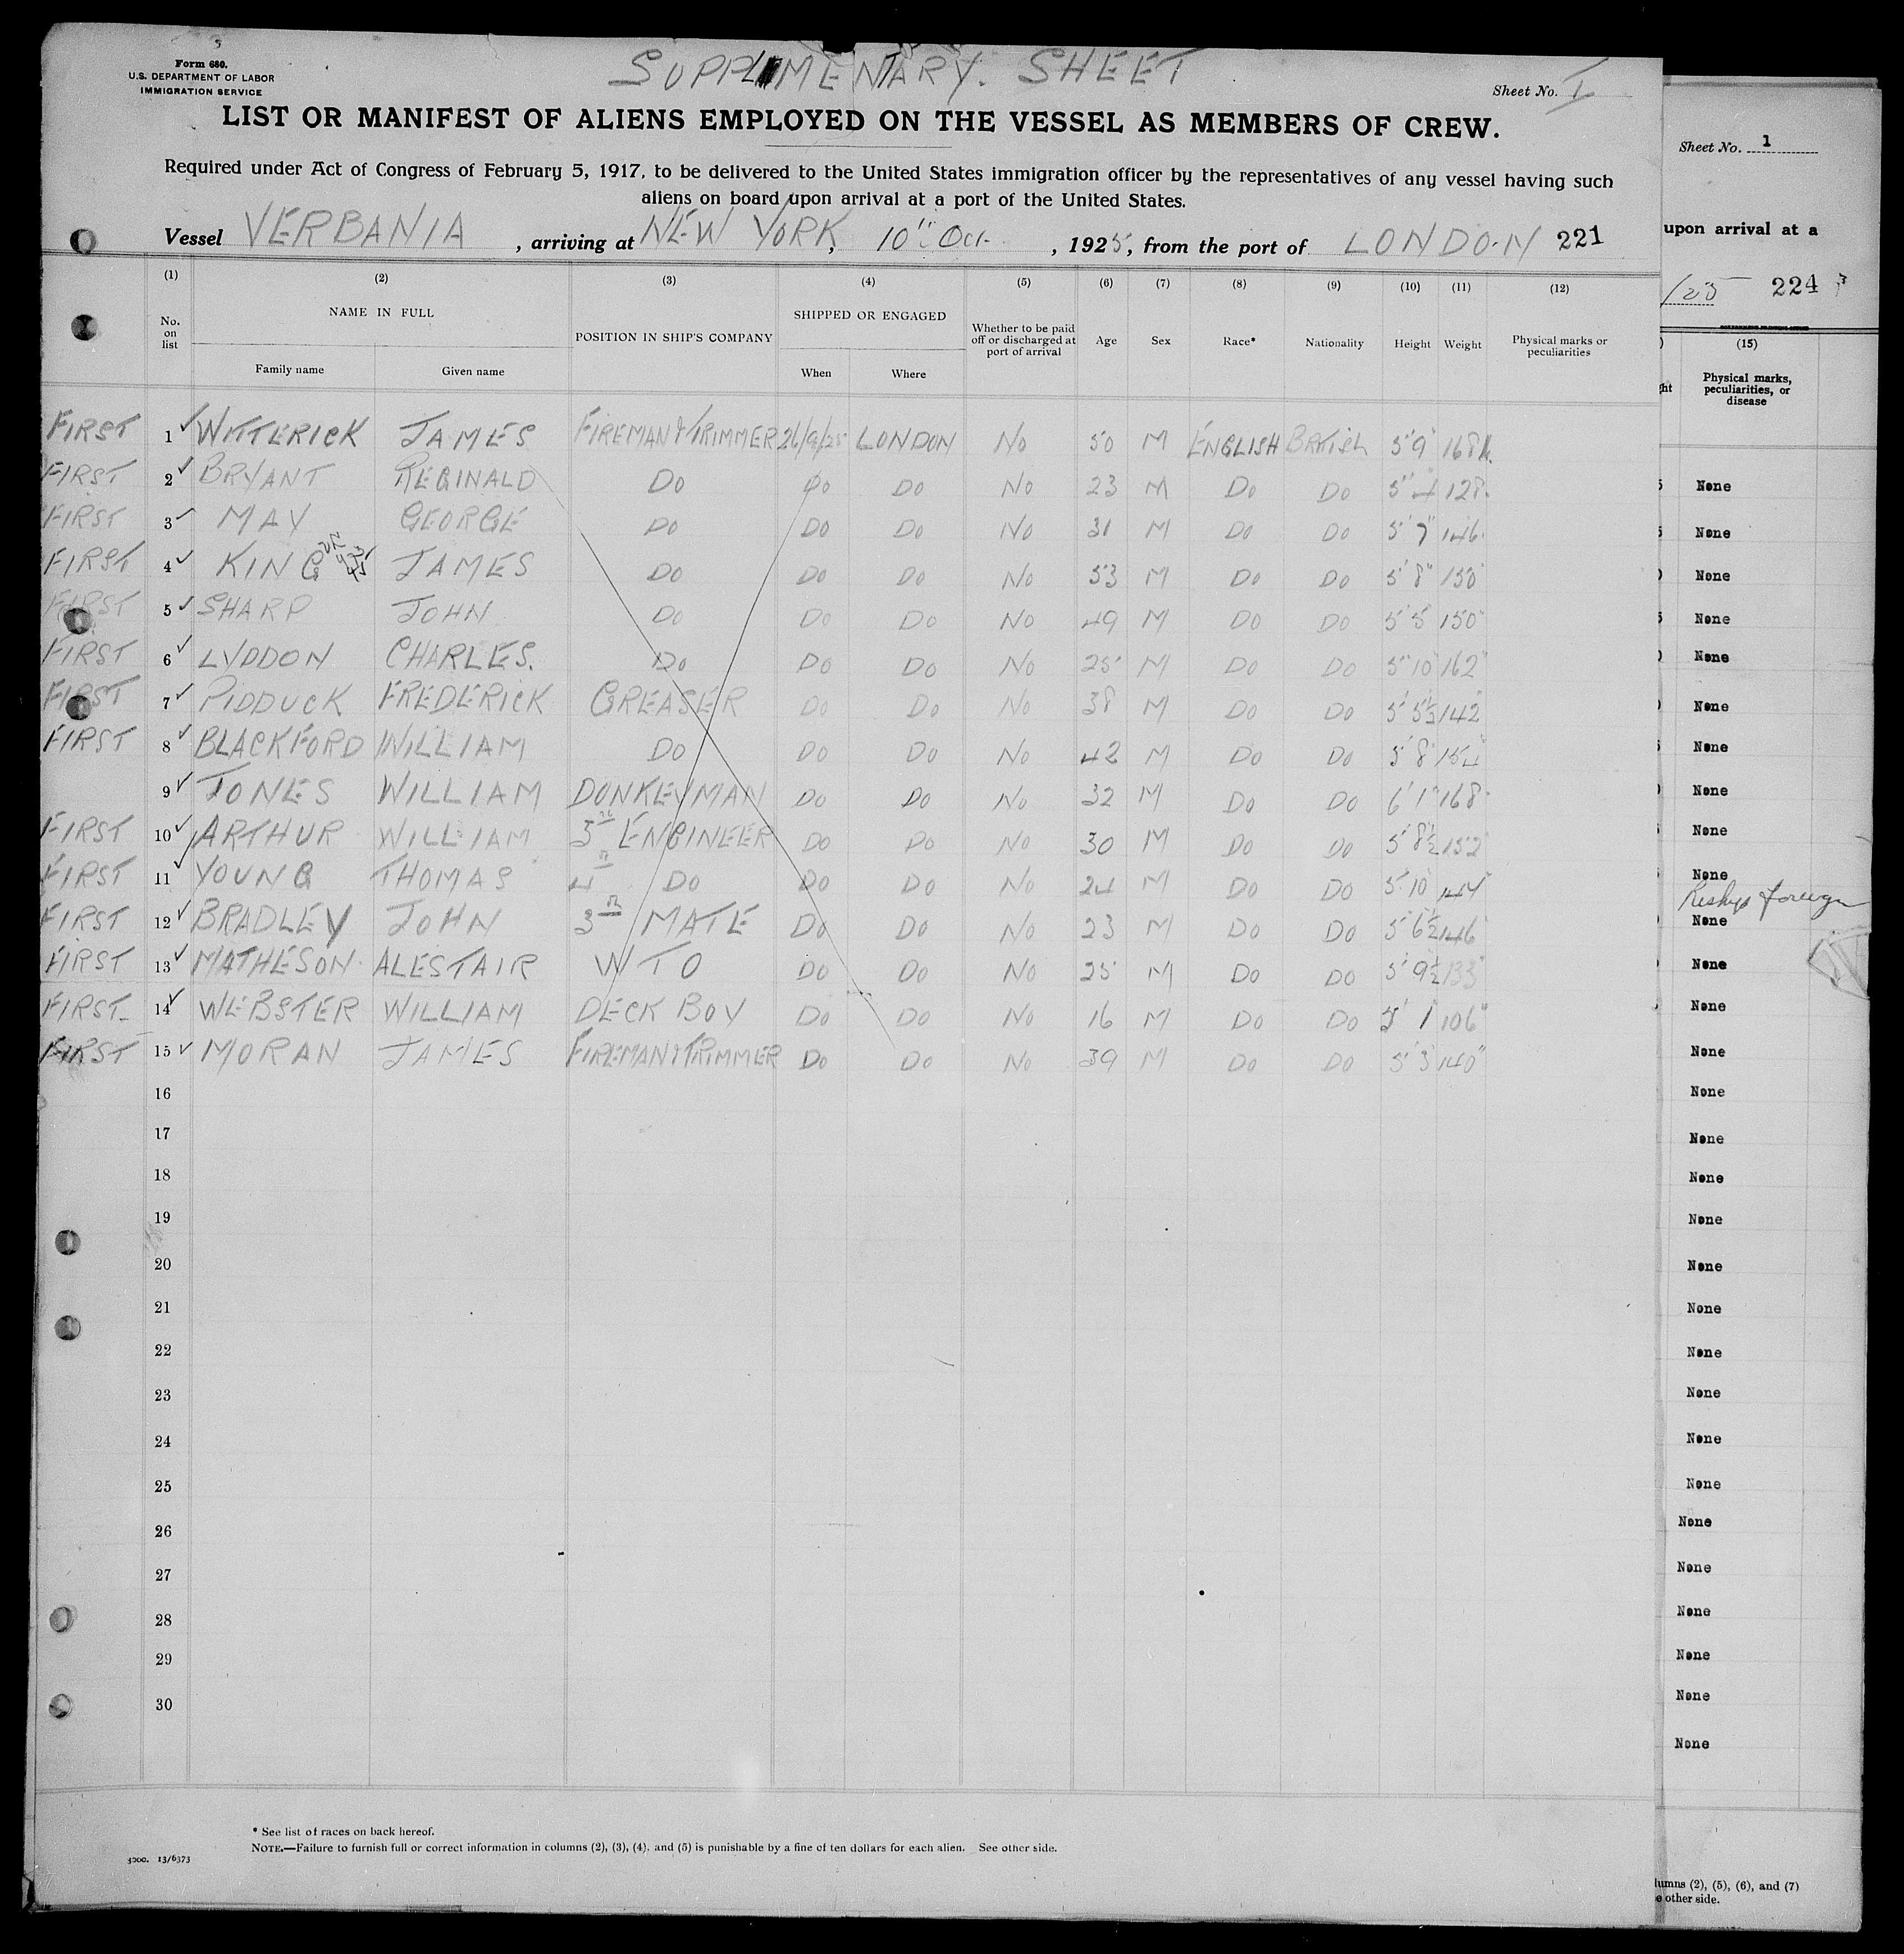 Form 680.
U.S. DEPARTMENT OF LABOR
IMMIGRATION SERVICE
SUPPLIMENTARY. SHEET
Sheet No. I
LIST OR MANIFEST OF ALIENS EMPLOYED ON THE VESSEL AS MEMBERS OF CREW.
Required under Act of Congress of February 5, 1917, to be delivered to the United States immigration officer by the representatives of any vessel having such
aliens on board upon arrival at a port of the United States.
Vessel VERBANIA, arriving at NEW YORK, 10th Oct., 1925, from the port of LONDON 221
(1) (2) (3) (4) (5) (6) (7) (8) (9) (10) (11) (12)
No. on list
NAME IN FULL
Family name Given name
POSITION IN SHIP'S COMPANY
SHIPPED OR ENGAGED
When Where
Whether to be paid off or discharged at port of arrival
Age Sex Race* Nationality Height Weight
Physical marks or peculiarities
FIRST 1 ✓ WITTERICK JAMES FIREMAN & TRIMMER 26/9/25 LONDON No 50 M ENGLISH British 5'9" 168
FIRST 2 ✓ BRYANT REGINALD Do Do Do No 23 M Do Do 5'4 128
FIRST 3 ✓ MAY GEORGE Do Do Do No 31 M Do Do 5'7" 146
FIRST 4 ✓ KING JAMES Do Do Do No 53 M Do Do 5'8" 150
FIRST 5 ✓ SHARP JOHN Do Do Do No 49 M Do Do 5'5 150"
FIRST 6 ✓ LYDDON CHARLES. Do Do Do No 25 M Do Do 5'10 162"
FIRST 7 ✓ PIDDUCK FREDERICK GREASER Do Do No 38 M Do Do 5'5½ 142"
FIRST 8 ✓ BLACKFORD WILLIAM Do Do Do No 42 M Do Do 5'8 154"
9 ✓ JONES WILLIAM DONKEYMAN Do Do No 32 M Do Do 6'1" 168
FIRST 10 ✓ ARTHUR WILLIAM 3rd ENGINEER Do Do No 30 M Do Do 5'8½ 152
FIRST 11 ✓ YOUNG THOMAS 4th Do Do Do No 24 M Do Do 5'10 144
FIRST 12 ✓ BRADLEY JOHN 3rd MATE Do Do No 23 M Do Do 5'6½ 146
FIRST 13 ✓ MATHESON ALESTAIR WTO Do Do No 25 M Do Do 5'9½ 133"
FIRST 14 ✓ WEBSTER WILLIAM DECK BOY Do Do No 16 M Do Do 5'1 106"
FIRST 15 ✓ MORAN JAMES FIREMAN & TRIMMER Do Do No 39 M Do Do 5'3 140"
16
17
18
19
20
21
22
23
24
25
26
27
28
29
30
* See list of races on back hereof.
NOTE.—Failure to furnish full or correct information in columns (2), (3), (4). and (5) is punishable by a fine of ten dollars for each alien. See other side.
3000. 13/6373
Sheet No. 1
upon arrival at a
/25 224 3
(15)
Physical marks,
peculiarities, or
disease
None
None
None
None
None
None
None
None
None
None
foreign
None
None
None
None
None
None
None
None
None
None
None
None
None
None
None
None
None
None
None
None
lumns (2), (5), (6), and (7)
e other side.